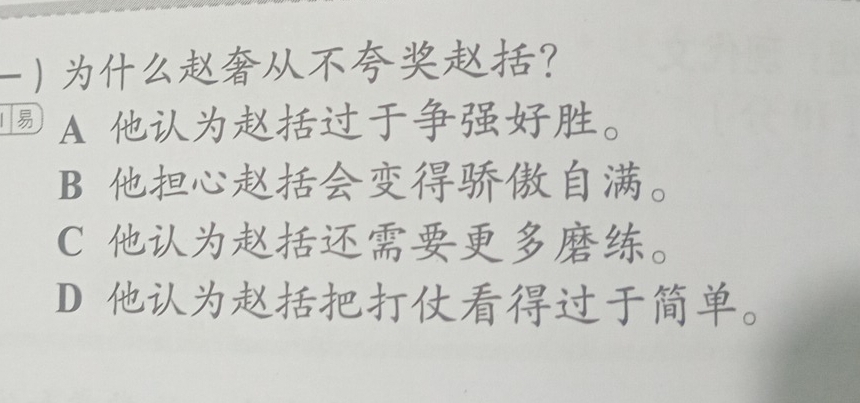 一）为什么赵奢从不夸奖赵括？
易
A 他认为赵括过于争强好胜。
B 他担心赵括会变得骄傲自满。
C 他认为赵括还需要更多磨练。
D 他认为赵括把打仗看得过于简单。